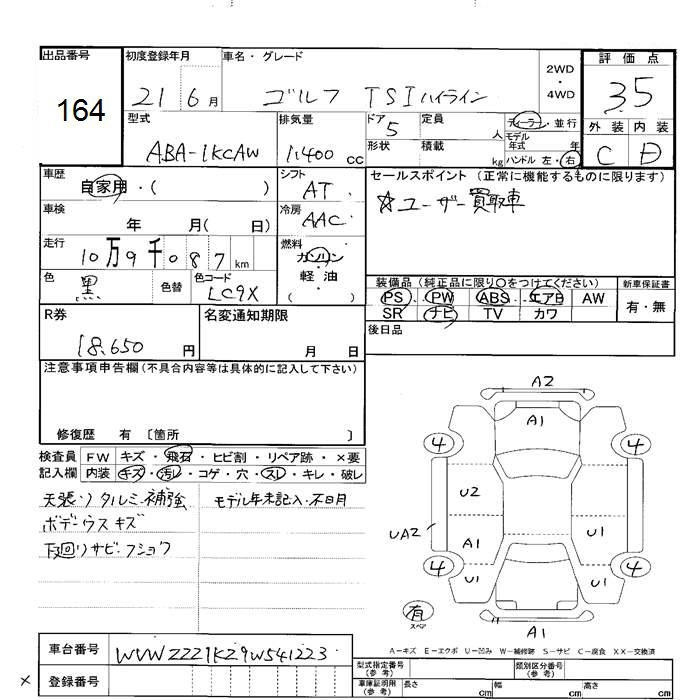 出品番号
164
初度登録年月
21 6月
車名・グレード
ゴルフ TSIハイライン
2WD
・
4WD
評価点
3.5
外装 内装
C D
型式
ABA-1KCAW
排気量
1.400 cc
ドア
5
定員
人
形状
積載
kg
ディーラー・並行
モデル年式 年
ハンドル 左・右
車歴
自家用・( )
シフト
AT
セールスポイント (正常に機能するものに限ります)
☆ユーザー買取車
車検
年 月( 日)
冷房
AAC
走行
10万9千087km
燃料
ガソリン
・
軽・油
( )
色
黒
色替
色コード
LC9X
装備品(純正品に限り○をつけてください)
PS・PW・ABS・エアB AW
SR ナビ TV カワ
新車保証書
有・無
後日品
R券
18.650 円
名変通知期限
月 日
注意事項申告欄(不具合内容等は具体的に記入して下さい)
修復歴 有 〔箇所 〕
検査員記入欄
FW キズ・飛石・ヒビ割・リペア跡・×要
内装 キズ・汚レ・コゲ・穴・スレ・キレ・破レ
天張リタルミ補強
モデル年未記入・不日月
ボデーウスキズ
下回リサビ・フショク
A2
A1
4 4
U2
UA2
A1 U1
4 4
U1 U1
有
スペア
A1
A-キズ E-エクボ U-凹み W-補修跡 S-サビ C-腐食 XX-交換済
車台番号
WVWZZZ1KZ9W541223
×
登録番号
型式指定番号
(参考)
類別区分番号
(参考)
車庫証明用
(参考)
長さ cm 幅 cm 高さ cm